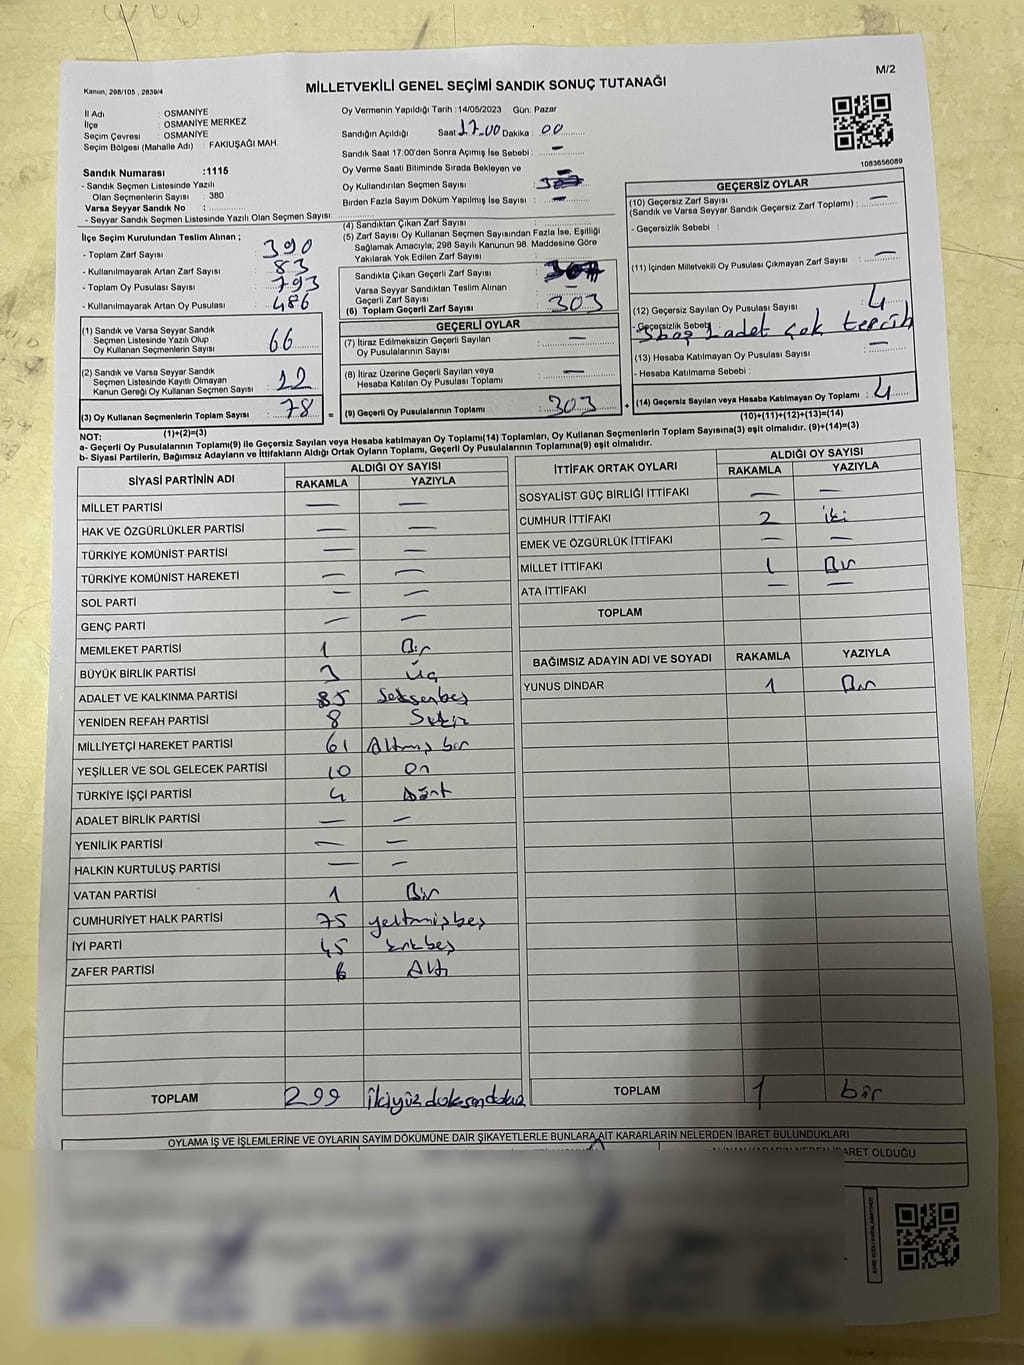 Kanun, 298/105 , 2839/4
MİLLETVEKİLİ GENEL SEÇİMİ SANDIK SONUÇ TUTANAĞI
M/2
İl Adı : OSMANİYE
İlçe : OSMANİYE MERKEZ
Seçim Çevresi : OSMANİYE
Seçim Bölgesi (Mahalle Adı) : FAKIUŞAĞI MAH.
Sandık Numarası :1115
- Sandık Seçmen Listesinde Yazılı
Olan Seçmenlerin Sayısı : 380
Varsa Seyyar Sandık No :
- Seyyar Sandık Seçmen Listesinde Yazılı Olan Seçmen Sayısı:
Oy Vermenin Yapıldığı Tarih : 14/05/2023 Gün: Pazar
Sandığın Açıldığı Saat 17.00 Dakika : 00
Sandık Saat 17:00'den Sonra Açımış İse Sebebi : —
Oy Verme Saati Bitiminde Sırada Bekleyen ve
Oy Kullandırılan Seçmen Sayısı : —
Birden Fazla Sayım Döküm Yapılmış İse Sayısı : —
1083656089
İlçe Seçim Kurulundan Teslim Alınan ;
- Toplam Zarf Sayısı : 390
- Kullanılmayarak Artan Zarf Sayısı : 83
- Toplam Oy Pusulası Sayısı : 793
- Kullanılmayarak Artan Oy Pusulası : 486
(1) Sandık ve Varsa Seyyar Sandık
Seçmen Listesinde Yazılı Olup
Oy Kullanan Seçmenlerin Sayısı : 66
(2) Sandık ve Varsa Seyyar Sandık
Seçmen Listesinde Kayıtlı Olmayan
Kanun Gereği Oy Kullanan Seçmen Sayısı : 12
(3) Oy Kullanan Seçmenlerin Toplam Sayısı : 78
(1)+(2)=(3)
(4) Sandıktan Çıkan Zarf Sayısı :
(5) Zarf Sayısı Oy Kullanan Seçmen Sayısından Fazla İse, Eşitliği
Sağlamak Amacıyla, 298 Sayılı Kanunun 98. Maddesine Göre
Yakılarak Yok Edilen Zarf Sayısı :
Sandıkta Çıkan Geçerli Zarf Sayısı :
Varsa Seyyar Sandıktan Teslim Alınan
Geçerli Zarf Sayısı : —
(6) Toplam Geçerli Zarf Sayısı : 303
GEÇERLİ OYLAR
(7) İtiraz Edilmeksizin Geçerli Sayılan
Oy Pusulalarının Sayısı : —
(8) İtiraz Üzerine Geçerli Sayılan veya
Hesaba Katılan Oy Pusulası Toplamı : —
= (9) Geçerli Oy Pusulalarının Toplamı : 303 +
GEÇERSİZ OYLAR
(10) Geçersiz Zarf Sayısı : —
(Sandık ve Varsa Seyyar Sandık Geçersiz Zarf Toplamı) :
- Geçersizlik Sebebi :
(11) İçinden Milletvekili Oy Pusulası Çıkmayan Zarf Sayısı : —
(12) Geçersiz Sayılan Oy Pusulası Sayısı : 4
- Geçersizlik Sebebi : 3 boş 1 adet çok tercih
(13) Hesaba Katılmayan Oy Pusulası Sayısı : —
- Hesaba Katılmama Sebebi :
(14) Geçersiz Sayılan veya Hesaba Katılmayan Oy Toplamı : 4
(10)+(11)+(12)+(13)=(14)
NOT:
a- Geçerli Oy Pusulalarının Toplamı(9) ile Geçersiz Sayılan veya Hesaba katılmayan Oy Toplamı(14) Toplamları, Oy Kullanan Seçmenlerin Toplam Sayısına(3) eşit olmalıdır. (9)+(14)=(3)
b- Siyasi Partilerin, Bağımsız Adayların ve İttifakların Aldığı Ortak Oyların Toplamı, Geçerli Oy Pusulalarının Toplamına(9) eşit olmalıdır.
SİYASİ PARTİNİN ADI ALDIĞI OY SAYISI
RAKAMLA YAZIYLA
MİLLET PARTİSİ — —
HAK VE ÖZGÜRLÜKLER PARTİSİ — —
TÜRKİYE KOMÜNİST PARTİSİ — —
TÜRKİYE KOMÜNİST HAREKETİ — —
SOL PARTİ — —
GENÇ PARTİ — —
MEMLEKET PARTİSİ 1 Bir
BÜYÜK BİRLİK PARTİSİ 3 Üç
ADALET VE KALKINMA PARTİSİ 85 Seksenbeş
YENİDEN REFAH PARTİSİ 8 Sekiz
MİLLİYETÇİ HAREKET PARTİSİ 61 Altmış bir
YEŞİLLER VE SOL GELECEK PARTİSİ 10 On
TÜRKİYE İŞÇİ PARTİSİ 4 Dört
ADALET BİRLİK PARTİSİ — —
YENİLİK PARTİSİ — —
HALKIN KURTULUŞ PARTİSİ — —
VATAN PARTİSİ 1 Bir
CUMHURİYET HALK PARTİSİ 75 yetmişbeş
İYİ PARTİ 45 kırkbeş
ZAFER PARTİSİ 6 Altı
TOPLAM 299 İkiyüz doksan dokuz
İTTİFAK ORTAK OYLARI ALDIĞI OY SAYISI
RAKAMLA YAZIYLA
SOSYALİST GÜÇ BİRLİĞİ İTTİFAKI — —
CUMHUR İTTİFAKI 2 iki
EMEK VE ÖZGÜRLÜK İTTİFAKI — —
MİLLET İTTİFAKI 1 Bir
ATA İTTİFAKI — —
TOPLAM
BAĞIMSIZ ADAYIN ADI VE SOYADI RAKAMLA YAZIYLA
YUNUS DİNDAR 1 Bir
TOPLAM 1 bir
OYLAMA İŞ VE İŞLEMLERİNE VE OYLARIN SAYIM DÖKÜMÜNE DAİR ŞİKAYETLERLE BUNLARA AİT KARARLARIN NELERDEN İBARET BULUNDUKLARI
İBARET OLDUĞU